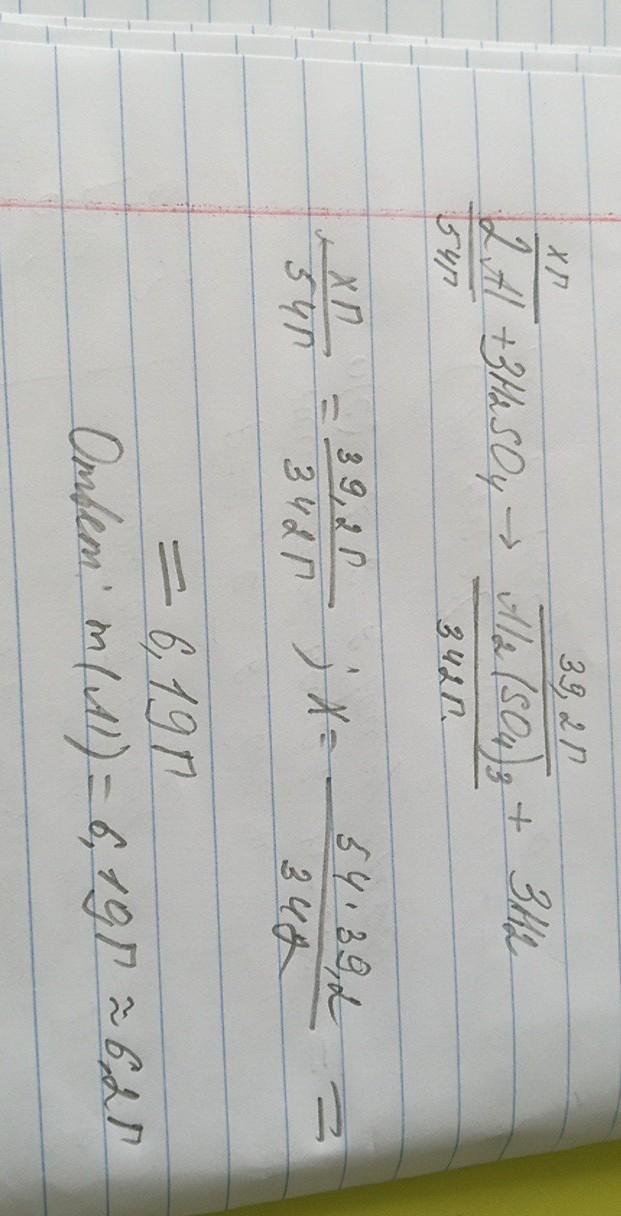 хг 39,2г
2Al + 3H2SO4 → Al2(SO4)3 + 3H2
54г 342г.
хг/54г = 39,2г/342г ; X = 54·39,2/342 =
= 6,19г
Ответ: m(Al) = 6,19г ≈ 6,2г